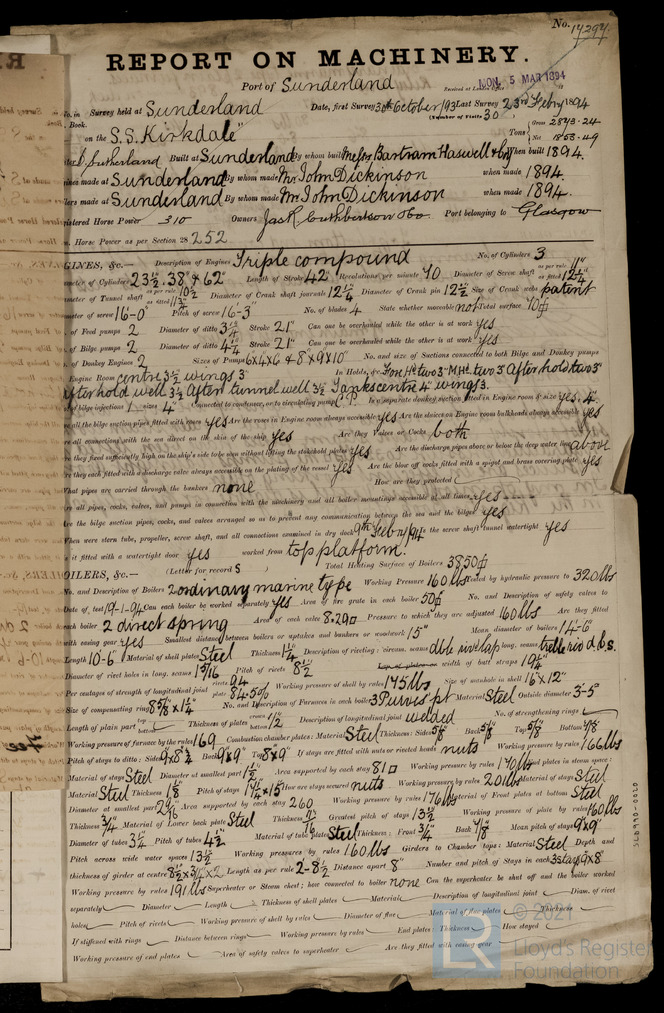 No. 14294
REPORT ON MACHINERY.
Port of Sunderland
MON. 5 MAR 1894
No. in Survey held at Sunderland Date, first Survey 30th October/93 Last Survey 23rd Febry 1894
Book. (Number of Visits 30
on the S.S. "Kirkdale" Tons Gross 2873.24 Net 1853.49
Sutherland Built at Sunderland By whom built Messrs Bartram Haswell & Co When built 1894.
made at Sunderland By whom made Mr John Dickinson when made 1894.
made at Sunderland By whom made Mr John Dickinson when made 1894.
Registered Horse Power 310 Owners Jas R. Cuthbertson & Co. Port belonging to Glasgow
Horse Power as per Section 28 252
ENGINES, &c.— Description of Engines Triple compound No. of Cylinders 3
Diameter of Cylinders 23½. 38" & 62" Length of Stroke 42" Revolutions per minute 70 Diameter of Screw shaft as per rule 11" as fitted 12¼"
Diameter of Tunnel shaft as per rule 10½ as fitted 11¾ Diameter of Crank shaft journals 12¼ Diameter of Crank pin 12½ Size of Crank webs patent
Diameter of screw 16-0" Pitch of screw 16-3" No. of blades 4 State whether moveable not Total surface 70
No. of Feed pumps 2 Diameter of ditto 3¼ Stroke 21" Can one be overhauled while the other is at work yes
No. of Bilge pumps 2 Diameter of ditto 4¼ Stroke 21" Can one be overhauled while the other is at work yes
No. of Donkey Engines 2 Sizes of Pumps 6x4x6 & 8x9x10" No. and size of Suctions connected to both Bilge and Donkey pumps
Engine Room centre 3½ wings 3" In Holds, &c. Fore Hd two 3" M Hd two 3" After hold two 3"
After hold well 3½ After tunnel well 3½ Tanks centre 4" wings 3.
No. of bilge injections 1 sizes 4" Connected to condenser, or to circulating pump C.P. Is a separate donkey suction fitted in Engine room & size yes. 4"
Are all the bilge suction pipes fitted with roses yes Are the roses in Engine room always accessible yes Are the sluices on Engine room bulkheads always accessible yes
Are all connections with the sea direct on the skin of the ship yes Are they Valves or Cocks both
Are they fixed sufficiently high on the ship's side to be seen without lifting the stokehold plates yes Are the discharge pipes above or below the deep water line above
Are they each fitted with a discharge valve always accessible on the plating of the vessel yes Are the blow off cocks fitted with a spigot and brass covering plate yes
What pipes are carried through the bunkers none How are they protected
Are all pipes, cocks, valves, and pumps in connection with the machinery and all boiler mountings accessible at all times yes
Are the bilge suction pipes, cocks, and valves arranged so as to prevent any communication between the sea and the bilges yes
When were stern tube, propeller, screw shaft, and all connections examined in dry dock 9th Feby/94 Is the screw shaft tunnel watertight yes
Is it fitted with a watertight door yes worked from top platform.
BOILERS, &c.— (Letter for record S ) Total Heating Surface of Boilers 3850
No. and Description of Boilers 2 ordinary marine type Working Pressure 160 lbs Tested by hydraulic pressure to 320 lbs
Date of test 19-1-94 Can each boiler be worked separately yes Area of fire grate in each boiler 50 No. and Description of safety valves to
each boiler 2 direct spring Area of each valve 8.29 Pressure to which they are adjusted 160 lbs Are they fitted
with easing gear yes Smallest distance between boilers or uptakes and bunkers or woodwork 15" Mean diameter of boilers 14-6"
Length 10-6 Material of shell plates Steel Thickness 1¼ Description of riveting: circum. seams dble riv lap long. seams treble riv d.b.s.
Diameter of rivet holes in long. seams 1 5/16 Pitch of rivets 8½ width of butt straps 19¼
Per centages of strength of longitudinal joint rivets 94 plate 84.5% Working pressure of shell by rules 175 lbs Size of manhole in shell 16"x12"
Size of compensating ring 8⅝x1¼" No. and Description of Furnaces in each boiler 3 Purves pt Material Steel Outside diameter 3-5"
Length of plain part top bottom Thickness of plates crown bottom 1/2 Description of longitudinal joint welded No. of strengthening rings
Working pressure of furnace by the rules 169 Combustion chamber plates: Material Steel Thickness: Sides ⅝ Back ⅝ Top ⅝ Bottom ⅞
Pitch of stays to ditto: Sides 9x8½ Back 9x9" Top 8x9" If stays are fitted with nuts or riveted heads nuts Working pressure by rules 166 lbs
Material of stays Steel Diameter at smallest part 1½ Area supported by each stay 81 Working pressure by rules 170 lbs End plates in steam space:
Material Steel Thickness 1⅛ Pitch of stays 17½x15 How are stays secured nuts Working pressure by rules 201 lbs Material of stays Steel
Diameter at smallest part 2 9/16 Area supported by each stay 260 Working pressure by rules 176 lbs Material of Front plates at bottom Steel
Thickness ¾ Material of Lower back plate Steel Thickness Greatest pitch of stays 13½ Working pressure of plate by rules 160 lbs
Diameter of tubes 3¼ Pitch of tubes 4½ Material of tube plates Steel Thickness: Front ¾ Back ⅞ Mean pitch of stays 9x9"
Pitch across wide water spaces 13½ Working pressures by rules 160 lbs Girders to Chamber tops: Material Steel Depth and
thickness of girder at centre 8½x¾x2 Length as per rule 2-8½ Distance apart 8" Number and pitch of Stays in each 3 stays 9x8
Working pressure by rules 191 lbs Superheater or Steam chest; how connected to boiler none Can the superheater be shut off and the boiler worked
separately Diameter Length Thickness of shell plates Material Description of longitudinal joint Diam. of rivet
holes Pitch of rivets Working pressure of shell by rules Diameter of flue Material of flue plates Thickness
If stiffened with rings Distance between rings Working pressure by rules End plates: Thickness How stayed
Working pressure of end plates Area of safety valves to superheater Are they fitted with easing gear
© 2021
Lloyd's Register
Foundation